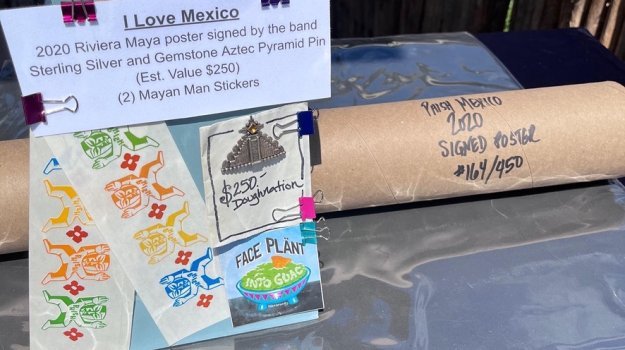 I Love Mexico
2020 Riviera Maya poster signed by the band
Sterling Silver and Gemstone Aztec Pyramid Pin
(Est. Value $250)
(2) Mayan Man Stickers
$250-
Doughnation
FACE PLANT
INTO GUAC
PHISH MEXICO
2020
SIGNED POSTER
#164/450